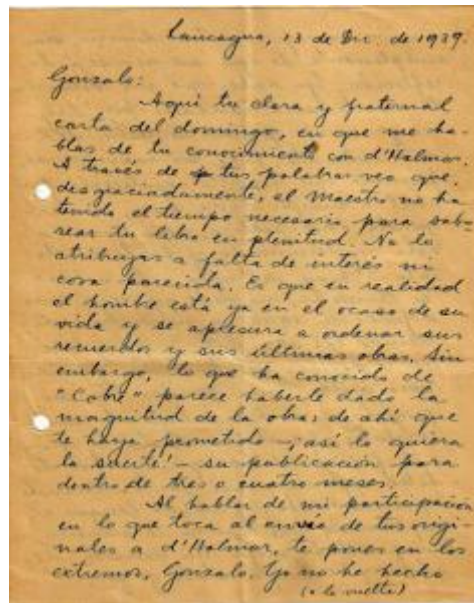 Rancagua, 13 de Dic. de 1939.
Gonzalo:
Aquí tu clara y fraternal
carta del domingo, en que me ha-
blas de tu conocimiento con d'Halmar.
A través de tus palabras veo que,
desgraciadamente, el Maestro no ha
tenido el tiempo necesario para sabo-
rear tu libro en plenitud. No lo
atribuyas a falta de interés ni
cosa parecida. Es que en realidad
el hombre está ya en el ocaso de su
vida y se apresura a ordenar sus
recuerdos y sus últimas obras. Sin
embargo, lo que ha conocido de
"Cobre" parece haberle dado la
magnitud de la obra: de ahí que
te haya prometido -¡así lo quiera
la suerte!- su publicación para
dentro de tres o cuatro meses.
Al hablar de mi participación
en lo que toca al envío de tus origi-
nales a d'Halmar, te pones en los
extremos, Gonzalo. Yo no he hecho
(a la vuelta)